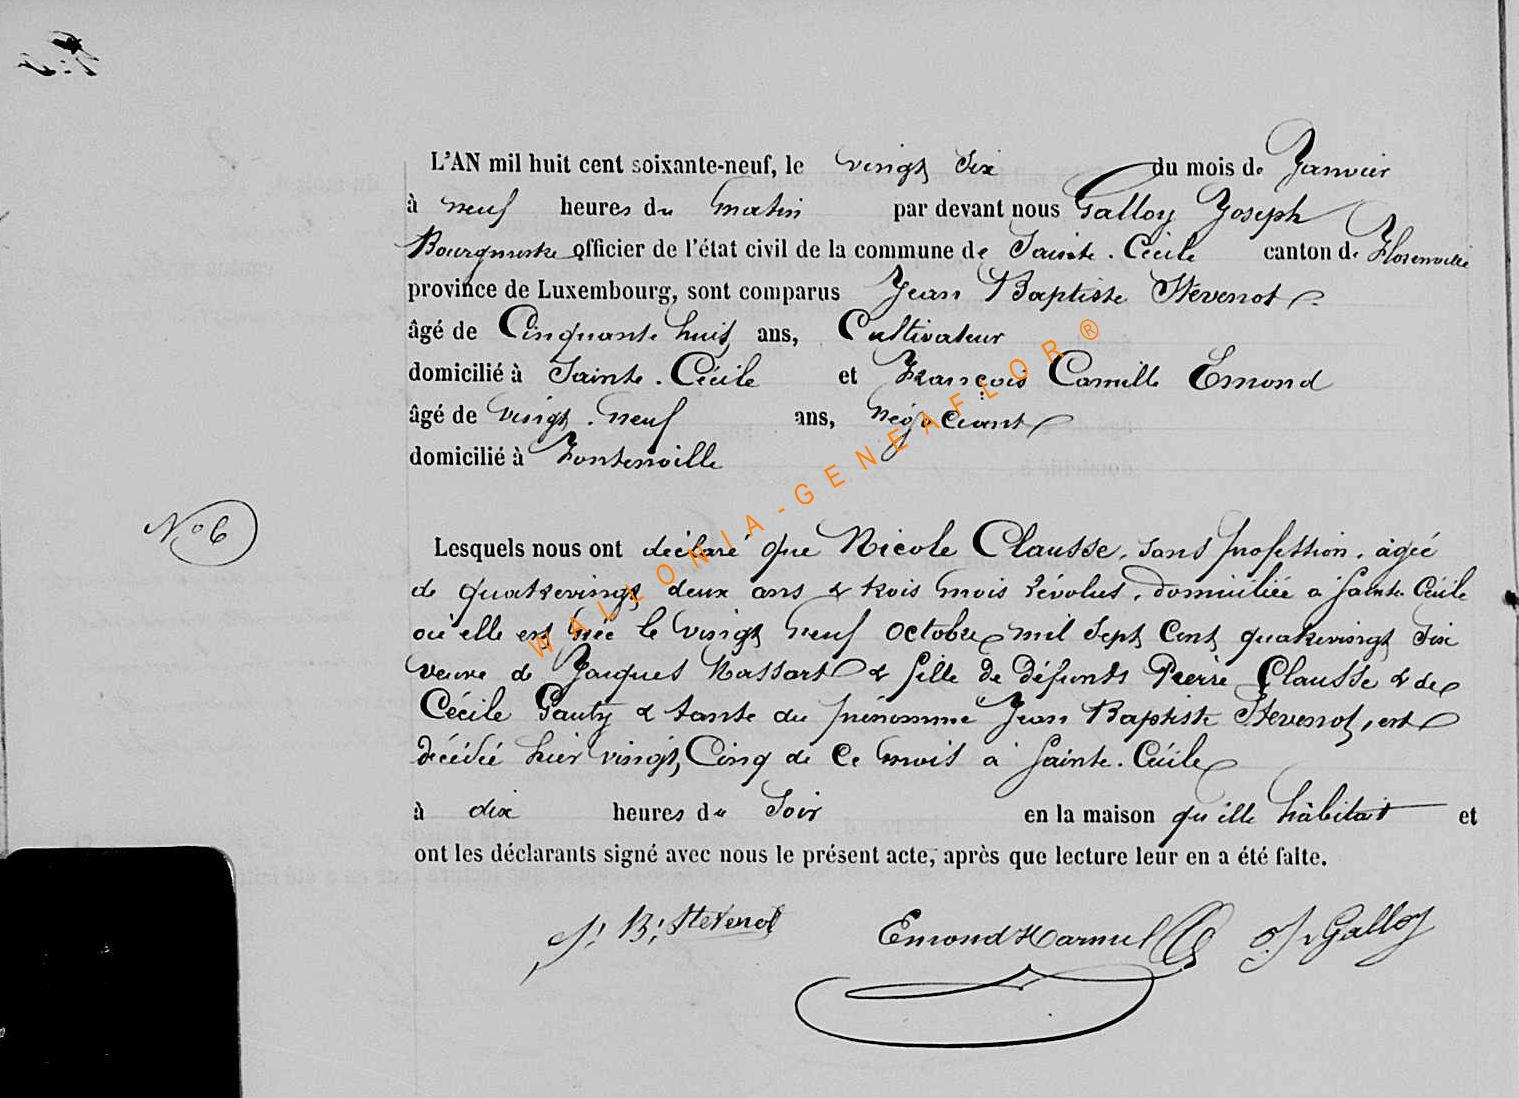 L'AN mil huit cent soixante-neuf, le vingt six du mois de Janvier
à neuf heures du matin par devant nous Galloy Joseph
Bourgmestre officier de l'état civil de la commune de Sainte-Cécile canton de Florenville
province de Luxembourg, sont comparus Jean Baptiste Stévenot
âgé de Cinquante huit ans, Cultivateur
domicilié à Sainte-Cécile et François Camille Emond
âgé de vingt-neuf ans, négociant
domicilié à Fontenoille
N° 6
Lesquels nous ont déclaré que Nicole Clausse, sans profession, agée
de quatrevingt deux ans & trois mois révolus, domiciliée à Sainte-Cécile
où elle est née le vingt neuf octobre mil sept cent quatrevingt six
veuve de Jacques Massart & fille de défunts Pierre Clausse & de
Cécile Gauty & tante du prénommé Jean Baptiste Stevenot, est
décédée hier vingt Cinq de ce mois à Sainte-Cécile
à dix heures du Soir en la maison qu'elle habitait et
ont les déclarants signé avec nous le présent acte, après que lecture leur en a été faite.
J. B. Stevenot Emond J. Galloy
WALLONIA-GENEAFLOR®